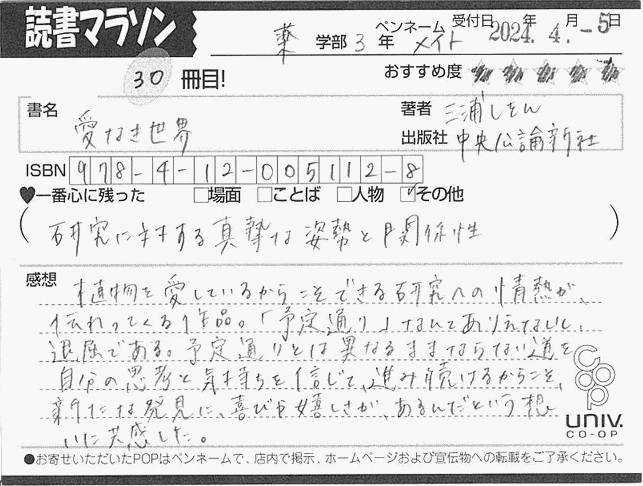 読書マラソン
薬 学部 3 年 ペンネーム メイト 受付日 2024年 4月 -5日
30 冊目!
おすすめ度 ★★★★★
書名 愛なき世界
著者 三浦しをん
出版社 中央公論新社
ISBN 978-4-12-005112-8
♥一番心に残った □場面 □ことば □人物 ☑その他
(研究に対する真摯な姿勢と関係性)
感想 植物を愛しているからこそできる研究への情熱が、
伝わってくる作品。「予定通り」なんてありえないし、
退屈である。予定通りとは異なるままならない道を
自分の思考と気持ちを信じて、進み続けるからこそ、
新たな発見に、喜びや嬉しさが、あるんだという想
いに共感した。
coop
UNIV.
CO-OP
●お寄せいただいたPOPはペンネームで、店内で掲示、ホームページおよび宣伝物への転載をご了承ください。